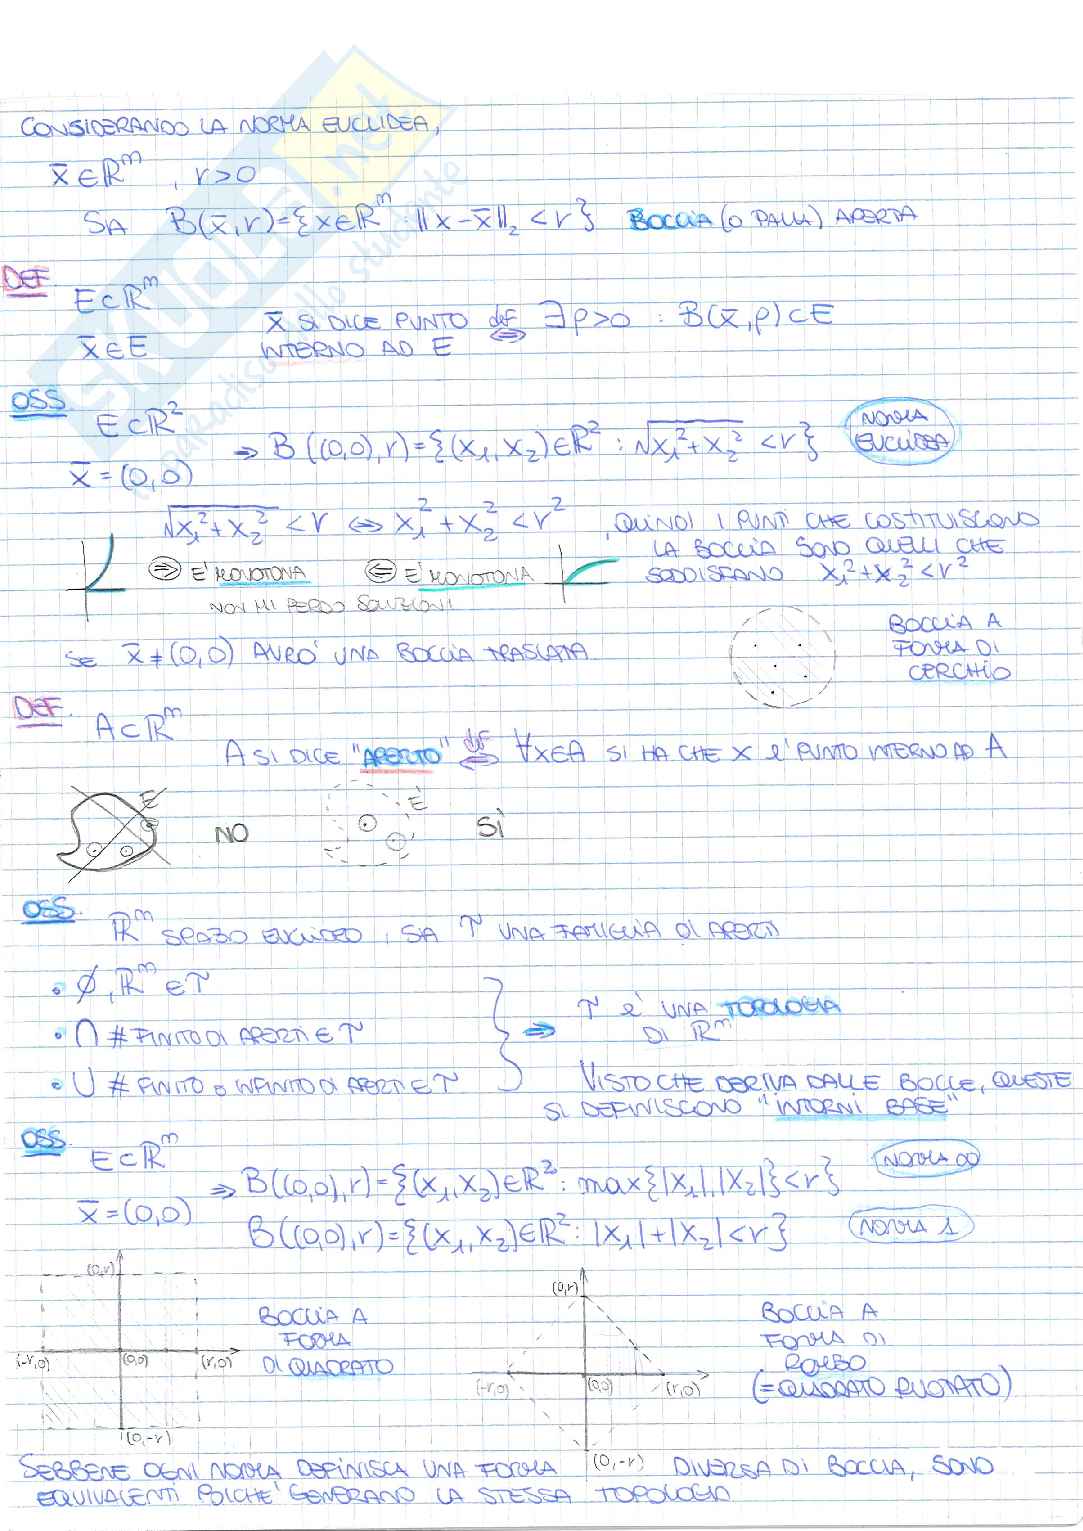 CONSIDERANDO LA NORMA EUCLIDEA,
x̄ ∈ ℝᵐ , r>0
SIA B(x̄,r)={x∈ℝᵐ: ‖x-x̄‖₂ < r} BOCCIA (O PALLA) APERTA
DEF.
E⊂ℝᵐ
x̄∈E
x̄ SI DICE PUNTO INTERNO AD E ⇔ def ∃ρ>0 : B(x̄,ρ)⊂E
OSS.
E⊂ℝ²
x̄=(0,0)
⇒ B((0,0),r)={(x₁,x₂)∈ℝ²: √x₁²+x₂² <r}
NORMA EUCLIDEA
√x₁²+x₂² <r ⇔ x₁²+x₂²<r² , QUINDI I PUNTI CHE COSTITUISCONO
LA BOCCIA SONO QUELLI CHE
SODDISFANO x₁²+x₂²<r²
⇒ E' MONOTONA
⇐ E' MONOTONA
NON MI PERDO SOLUZIONI
BOCCIA A
FORMA DI
CERCHIO
SE x̄≠(0,0) AVRO' UNA BOCCIA TRASLATA
DEF.
A⊂ℝᵐ
A SI DICE "APERTO" ⇔ def ∀x∈A SI HA CHE x E' PUNTO INTERNO AD A
E
NO
E
SÌ
OSS.
ℝᵐ SPAZIO EUCLIDEO, SIA τ UNA FAMIGLIA DI APERTI
• ∅, ℝᵐ ∈ τ
• ∩ # FINITO DI APERTI ∈ τ
• ∪ # FINITO O INFINITO DI APERTI ∈ τ
⇒ τ E' UNA TOPOLOGIA
DI ℝᵐ
VISTO CHE DERIVA DALLE BOCCE, QUESTE
SI DEFINISCONO "INTORNI BASE"
OSS.
E⊂ℝᵐ
x̄=(0,0)
⇒ B((0,0),r)={(x₁,x₂)∈ℝ²: max{|x₁|,|x₂|}<r}
NORMA ∞
B((0,0),r)={(x₁,x₂)∈ℝ²: |x₁|+|x₂|<r}
NORMA 1
(0,r)
(-r,0)
(0,0)
(r,0)
(0,-r)
BOCCIA A
FORMA
DI QUADRATO
(0,r)
(-r,0)
(0,0)
(r,0)
(0,-r)
BOCCIA A
FORMA DI
ROMBO
(=QUADRATO RUOTATO)
SEBBENE OGNI NORMA DEFINISCA UNA FORMA DIVERSA DI BOCCIA, SONO
EQUIVALENTI POICHE' GENERANO LA STESSA TOPOLOGIA
SKUOLA.net